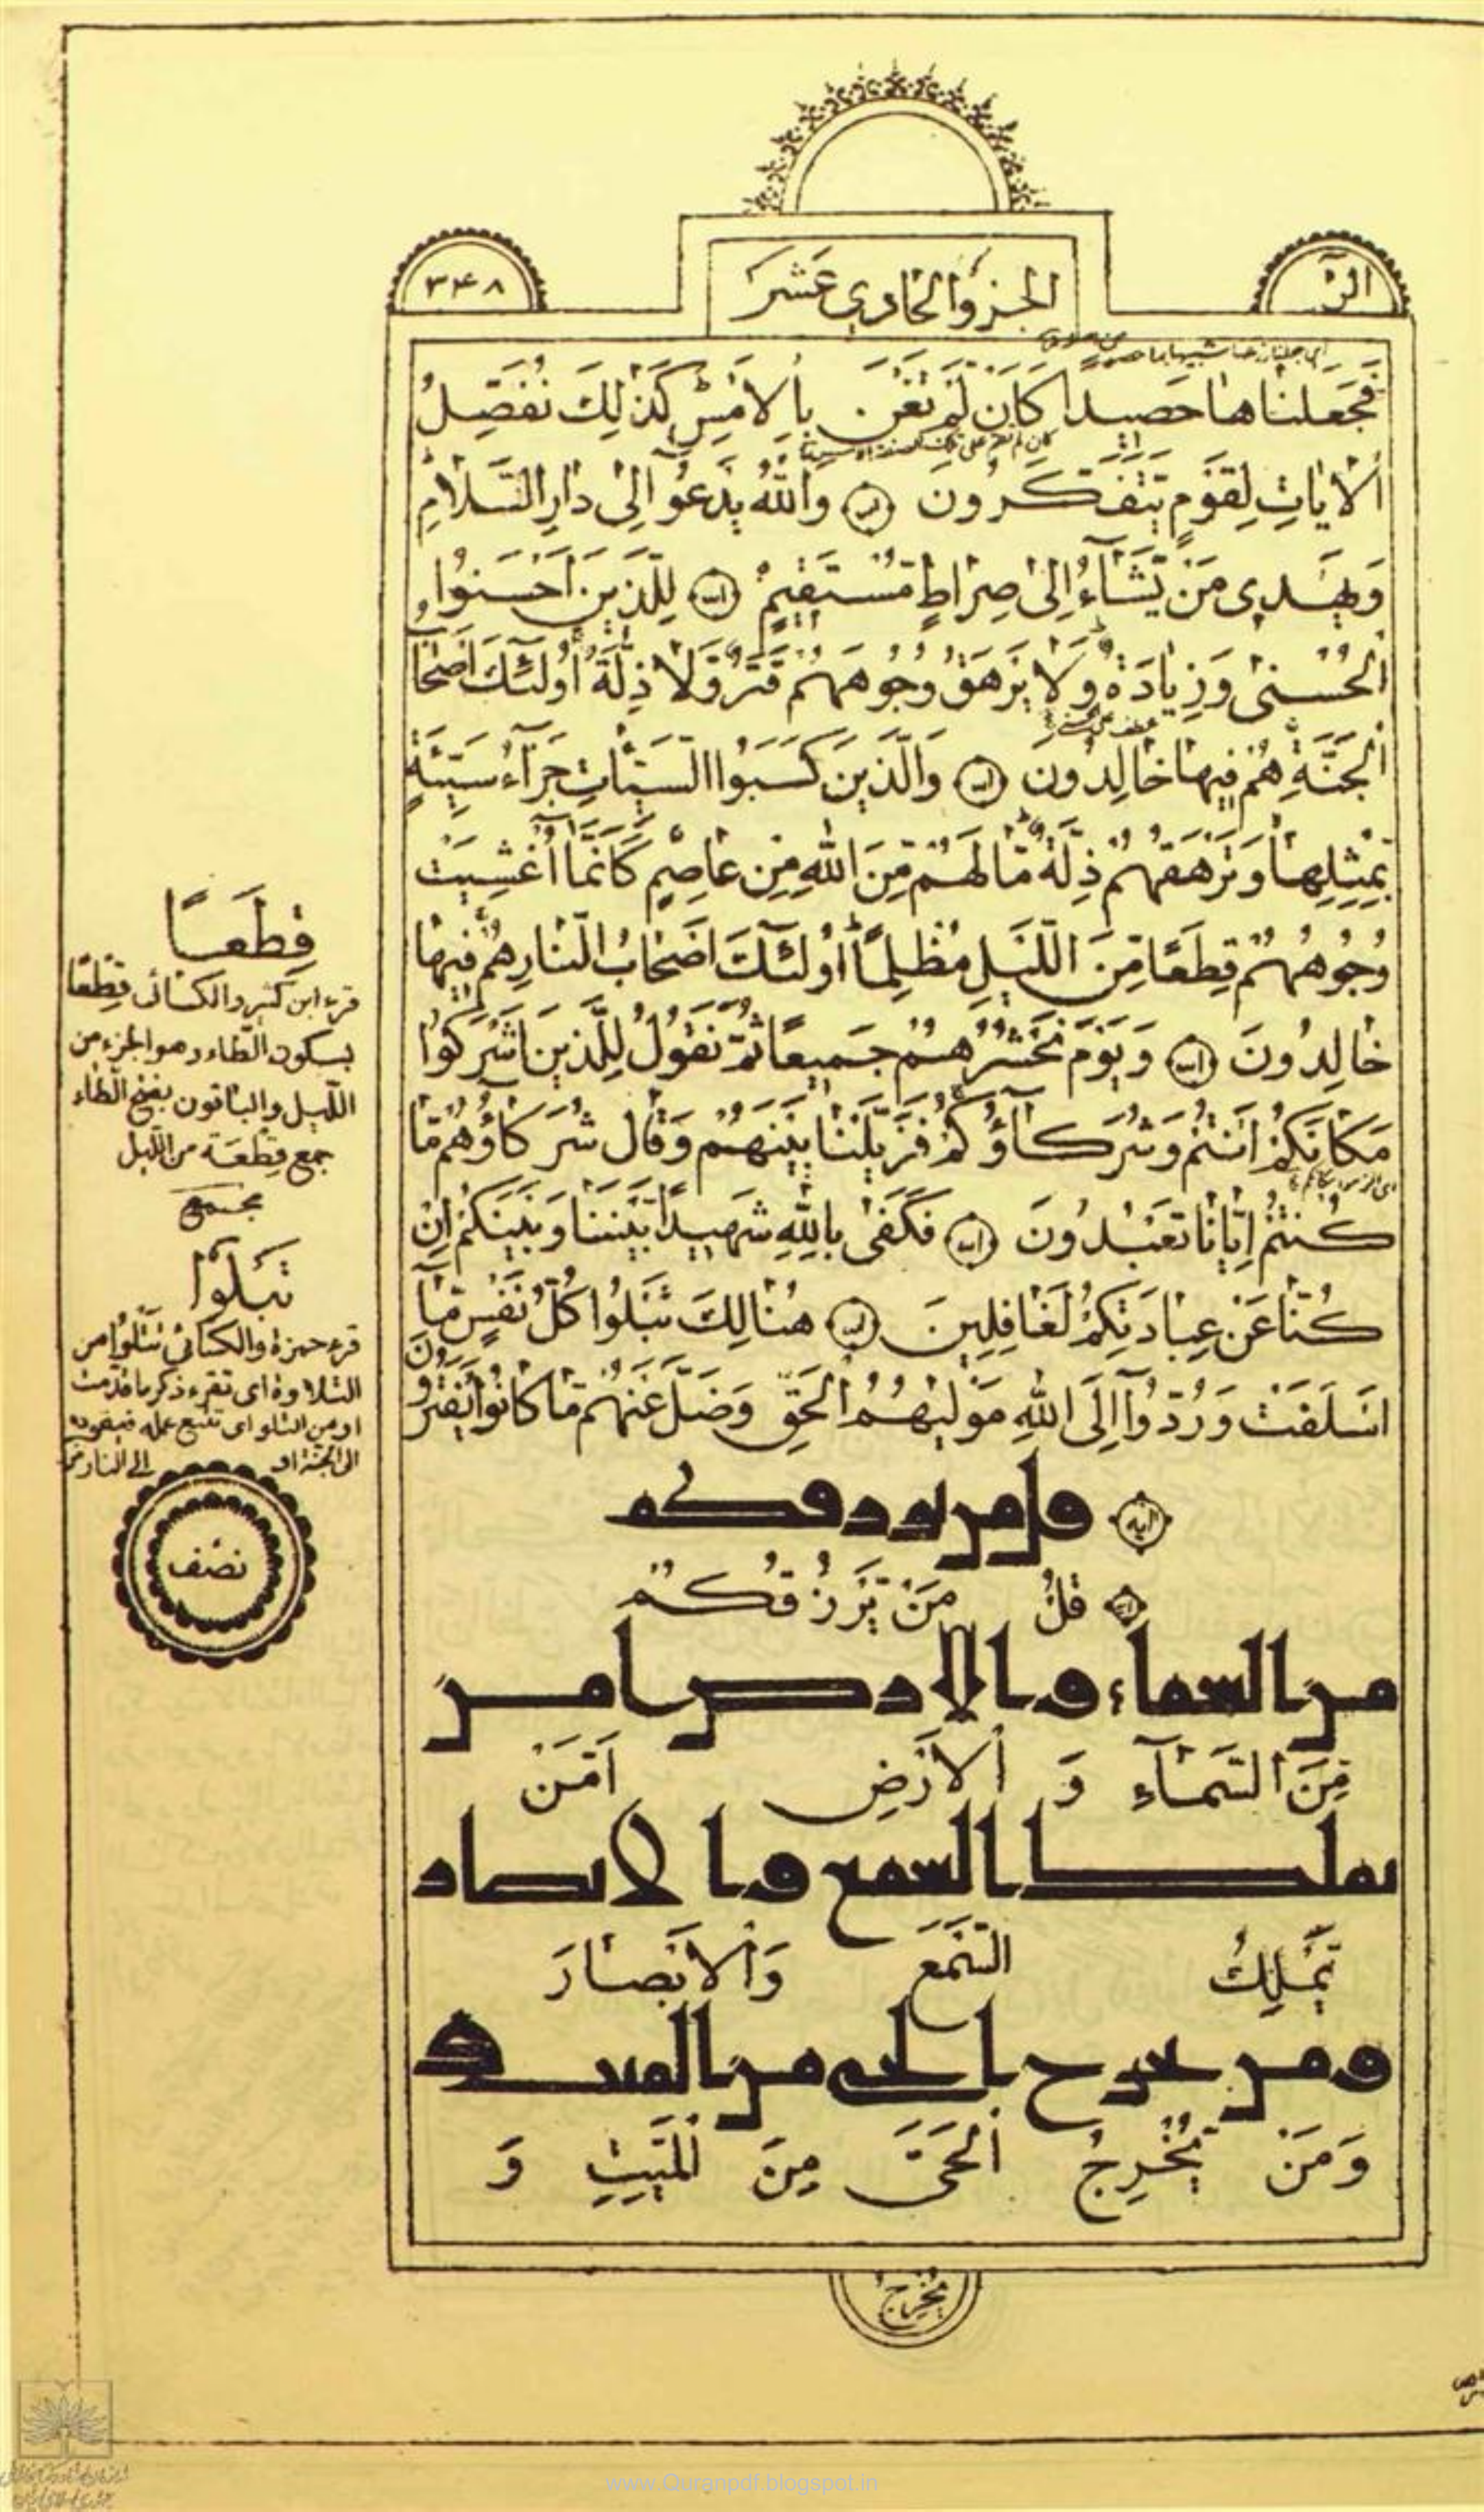 الر
الجزو الحادي عشر
۳۴۸
فَجَعَلْنَاهَا حَصِيدًا كَاَنْ لَمْ تَغْنَ بِالْاَمْسِ كَذٰلِكَ نُفَصِّلُ
الْاٰيَاتِ لِقَوْمٍ يَتَفَكَّرُونَ وَاللّٰهُ يَدْعُوٓا اِلٰى دَارِ السَّلَامِ
وَيَهْدِي مَنْ يَّشَآءُ اِلٰى صِرَاطٍ مُسْتَقِيمٍ لِلَّذِينَ اَحْسَنُوا
الْحُسْنٰى وَزِيَادَةٌ وَلَا يَرْهَقُ وُجُوهَهُمْ قَتَرٌ وَّلَا ذِلَّةٌ اُولٰٓئِكَ اَصْحَابُ
الْجَنَّةِ هُمْ فِيهَا خَالِدُونَ وَالَّذِينَ كَسَبُوا السَّيِّئَاتِ جَزَآءُ سَيِّئَةٍ
بِمِثْلِهَا وَتَرْهَقُهُمْ ذِلَّةٌ مَّا لَهُمْ مِّنَ اللّٰهِ مِنْ عَاصِمٍ كَاَنَّمَآ اُغْشِيَتْ
وُجُوهُهُمْ قِطَعًا مِّنَ اللَّيْلِ مُظْلِمًا اُولٰٓئِكَ اَصْحَابُ النَّارِ هُمْ فِيهَا
خَالِدُونَ وَيَوْمَ نَحْشُرُهُمْ جَمِيعًا ثُمَّ نَقُولُ لِلَّذِينَ اَشْرَكُوا
مَكَانَكُمْ اَنْتُمْ وَشُرَكَآؤُكُمْ فَزَيَّلْنَا بَيْنَهُمْ وَقَالَ شُرَكَاؤُهُمْ مَّا
كُنْتُمْ اِيَّانَا تَعْبُدُونَ فَكَفٰى بِاللّٰهِ شَهِيدًا بَيْنَنَا وَبَيْنَكُمْ اِنْ
كُنَّا عَنْ عِبَادَتِكُمْ لَغَافِلِينَ هُنَالِكَ تَبْلُوا كُلُّ نَفْسٍ مَّآ
اَسْلَفَتْ وَرُدُّوٓا اِلَى اللّٰهِ مَوْلٰيهُمُ الْحَقِّ وَضَلَّ عَنْهُمْ مَّا كَانُوا يَفْتَرُونَ
آيه قل من يرزقكم
قُلْ مَنْ يَّرْزُقُكُمْ
من السماء والارض امن
مِّنَ السَّمَآءِ وَ الْاَرْضِ اَمَّنْ
يملك السمع والابصار
يَّمْلِكُ السَّمْعَ وَالْاَبْصَارَ
ومن يخرج الحي من الميت و
وَمَنْ يُّخْرِجُ الْحَيَّ مِنَ الْمَيِّتِ وَ
يُخْرِجُ
قِطَعًا
قرء ابن كثير والكسائى قِطْعًا
بسكون الطاء وهو الجزء من
الليل والباقون بفتح الطاء
جمع قِطْعَة من الليل
مجمع
تَبْلُوا
قرء حمزة والكسائى تَتْلُوا من
التلاوة اى تقرء ذكر ما قدمت
او من التلو اى تتبع عمله فيقوده
الى الجنة او الى النار
نصف
www.Quranpdf.blogspot.in